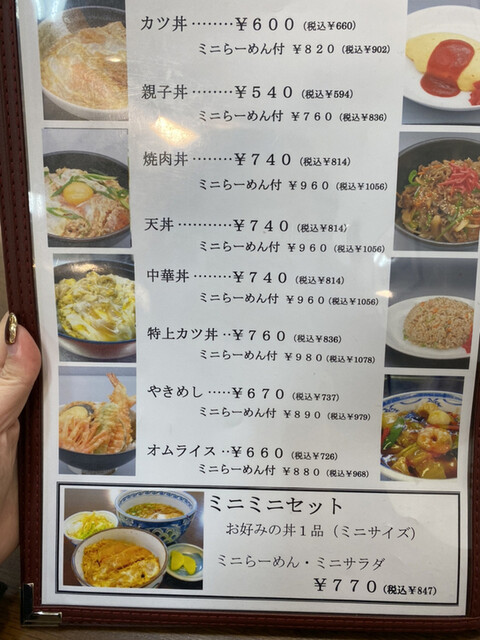 カツ丼 ········ ￥６００ (税込￥660)
ミニらーめん付 ￥８２０ (税込￥902)
親子丼 ········ ￥５４０ (税込￥594)
ミニらーめん付 ￥７６０ (税込￥836)
焼肉丼 ········ ￥７４０ (税込￥814)
ミニらーめん付 ￥９６０ (税込￥1056)
天丼 ·········· ￥７４０ (税込￥814)
ミニらーめん付 ￥９６０ (税込￥1056)
中華丼 ········ ￥７４０ (税込￥814)
ミニらーめん付 ￥９６０ (税込￥1056)
特上カツ丼 ·· ￥７６０ (税込￥836)
ミニらーめん付 ￥９８０ (税込￥1078)
やきめし ····· ￥６７０ (税込￥737)
ミニらーめん付 ￥８９０ (税込￥979)
オムライス ·· ￥６６０ (税込￥726)
ミニらーめん付 ￥８８０ (税込￥968)
ミニミニセット
お好みの丼１品（ミニサイズ）
ミニらーめん・ミニサラダ
￥７７０ (税込￥847)